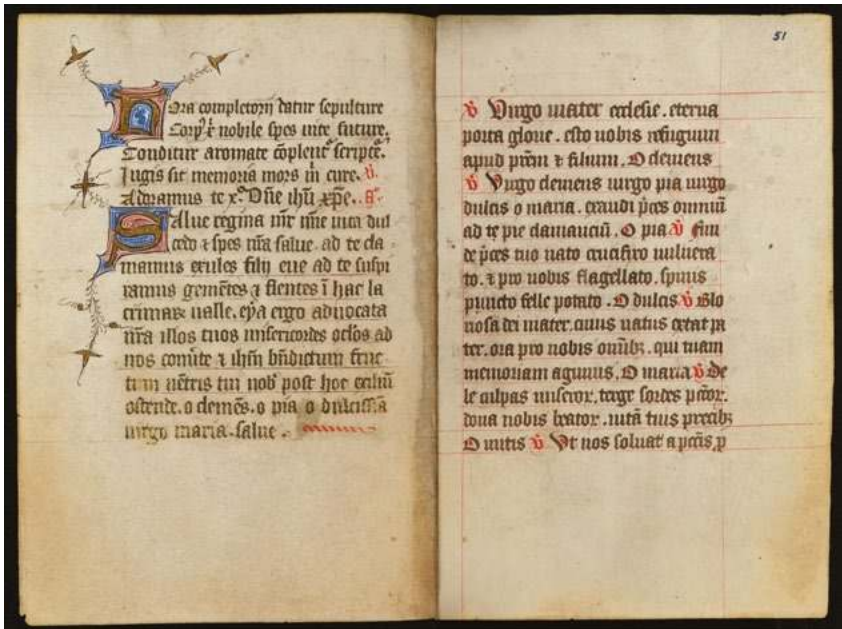 Hora completorij datur sepulture
Corpꝰ xͥ nobile spes vite future.
Conditur aromate cōplentͬ scripte͛.
Iugis sit memoria mors in cure. v.
Adoramus te xͤ. Dn̄e ihū xp̄e. a͛.
Salue regina mr̄ mīe vita dul
cedo ⁊ spes nr̄a salue. ad te cla
mamus exules filij eue ad te suspi
ramus gemētes ⁊ flentes ī hac la
crimaꝝ ualle. eya ergo aduocata
nr̄a illos tuos misericordes oclōs ad
nos conūte ⁊ ihm̄ bn̄dictum fruc
tum uētris tui nob̄ post hoc exiliū
ostende. o clemēs. o pia o dulcissīa
uirgo maria. salue.
51
v Virgo mater ecclesie. eterna
porta glorie. esto nobis refugium
apud prēm ⁊ filium. O clemens
v Virgo clemens uirgo pia uirgo
dulcis o maria. exaudi p̄ces omniū
ad te pie clamanciū. O pia v fun
de p̄ces tuo nato crucifixo uulnera
to. ⁊ pro nobis flagellato. spinis
puncto felle potato. O dulcis v Glo
riosa dei mater. cuius natus extat pa
ter. ora pro nobis omībꝫ. qui tuam
memoriam agimus. O maria v De
le culpas miseroꝝ. terge sordes pcc̄oꝝ.
dona nobis beatoꝝ. uitā tuis precibꝫ
O mitis v Vt nos soluat a pcc̄is. ꝓ